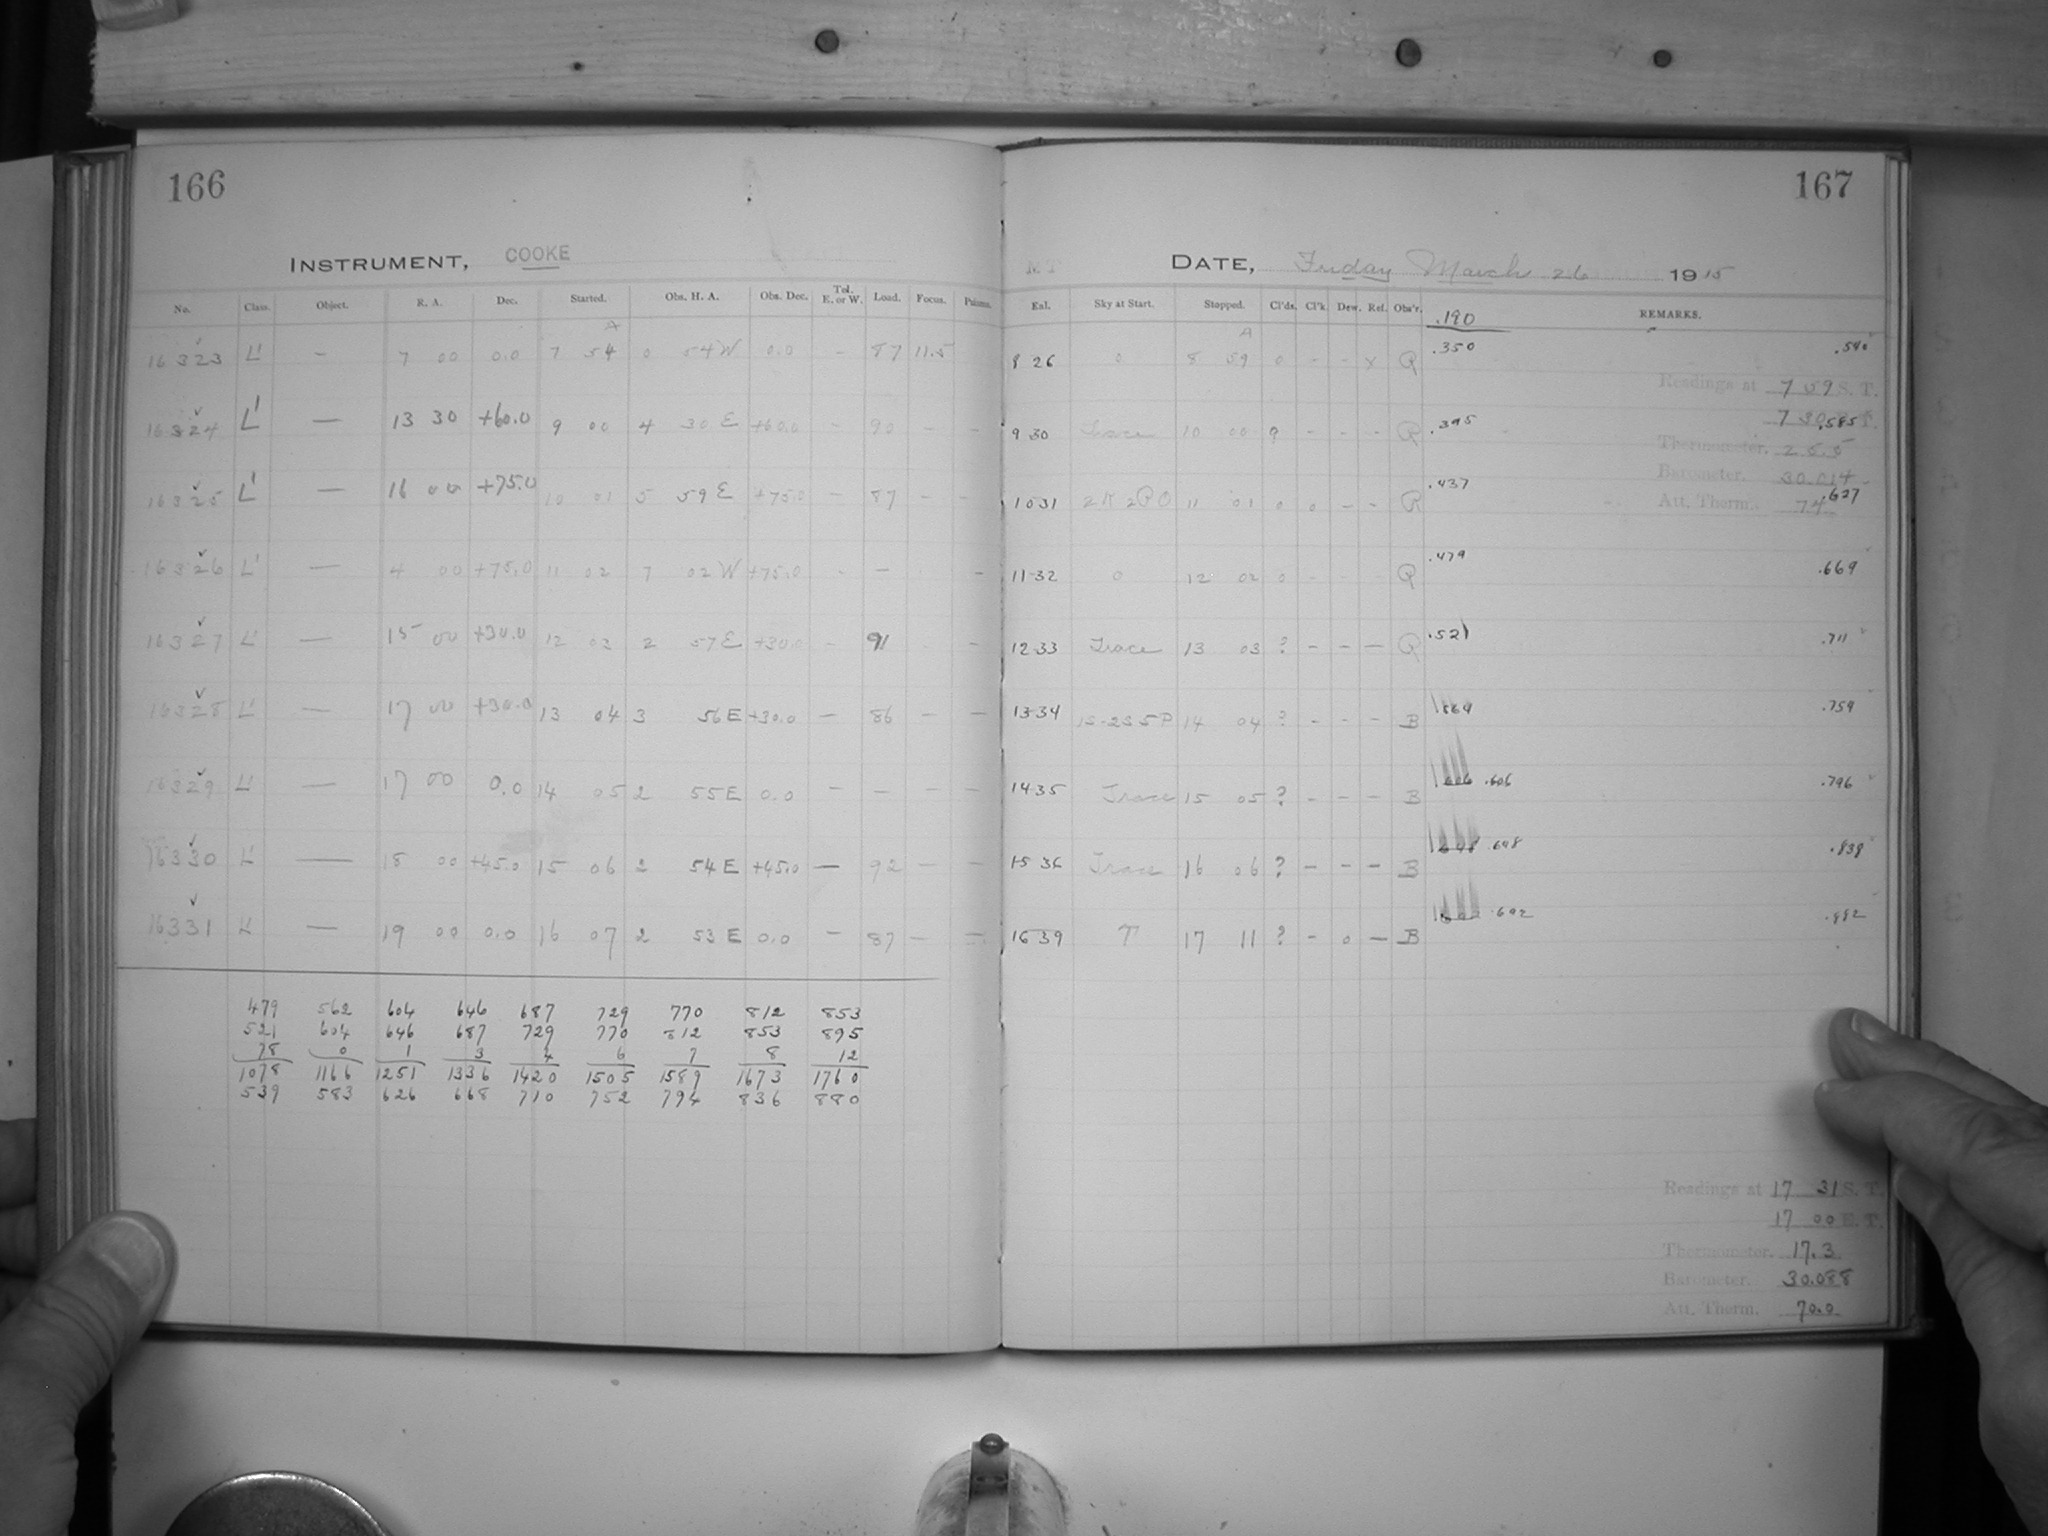 166
INSTRUMENT, COOKE
No. Class. Object. R. A. Dec. Started. Obs. H. A. Obs. Dec. Tel. E. or W. Load. Focus.
A
16323 L' — 7 00 0.0 7 54 0 54 W 0.0 - 87 11.5
16324 L' — 13 30 +60.0 9 00 4 30 E +60.0 - 90 - -
16325 L' — 16 00 +75.0 10 01 5 59 E +75.0 - 87 - -
16326 L' — 4 00 +75.0 11 02 7 02 W +75.0 - — -
16327 L' — 15 00 +30.0 12 03 2 57 E +30.0 - 91 -
16328 L' — 17 00 +30.0 13 04 3 56 E +30.0 — 86 - -
16329 L' — 17 00 0.0 14 05 2 55 E 0.0 - - - -
16330 L' — 18 00 +45.0 15 06 2 54 E +45.0 — 92 - -
16331 L' — 19 00 0.0 16 07 2 53 E 0.0 - 87 - -
479 562 604 646 687 729 770 812 853
521 604 646 687 729 770 812 853 895
78 0 1 3 4 6 7 8 12
1078 1166 1251 1336 1420 1505 1589 1673 1760
539 583 626 668 710 752 794 836 880
167
DATE, Friday March 26 1915
Sky at Start. Stopped. Cl'ds. Cl'k. Dew. Ref. Obs'r. .190 REMARKS.
A
8 26 0 8 59 0 - - x R .350 .540
Readings at 7 59 S. T.
9 30 Trace 10 00 ? - - - R .395 .585
Thermometer. 25.5
Barometer. 30.014
10 31 11 01 0 0 - - R .437 .627
Att. Therm. 74
11 32 0 12 02 0 - - - R .479 .669
12 33 Trace 13 03 ? - - — R .521 .711
13 34 1S-2S 5P 14 04 ? - - - B .569 .759
14 35 Trace 15 05 ? - - - B .606 .606 .796
15 36 Trace 16 06 ? - - - B .648 .648 .838
16 39 T 17 11 ? - 0 — B .692 .882
Readings at 17 31 S. T.
17 00 E. T.
Thermometer. 17.3
Barometer. 30.088
Att. Therm. 70.0